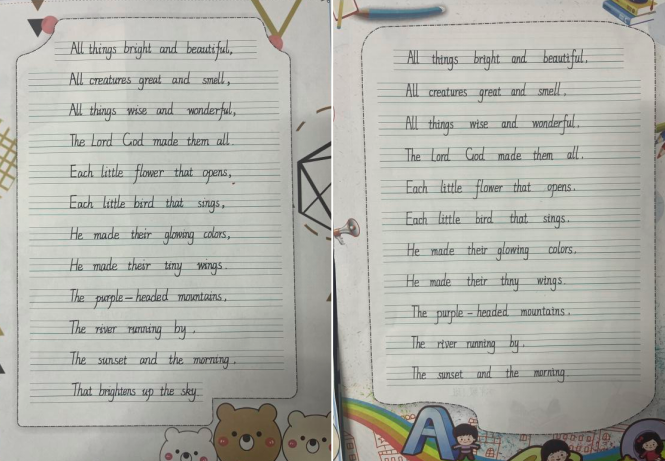 All things bright and beautiful,
All creatures great and smell,
All things wise and wonderful,
The Lord God made them all.
Each little flower that opens,
Each little bird that sings,
He made their glowing colors,
He made their tiny wings.
The purple-headed mountains,
The river running by,
The sunset and the morning.
That brightens up the sky
All things bright and beautiful.
All creatures great and smell.
All things wise and wonderful.
The Lord God made them all.
Each little flower that opens.
Each little bird that sings.
He made their glowing colors.
He made their thny wings.
The purple-headed mountains.
The river running by.
The sunset and the morning
A